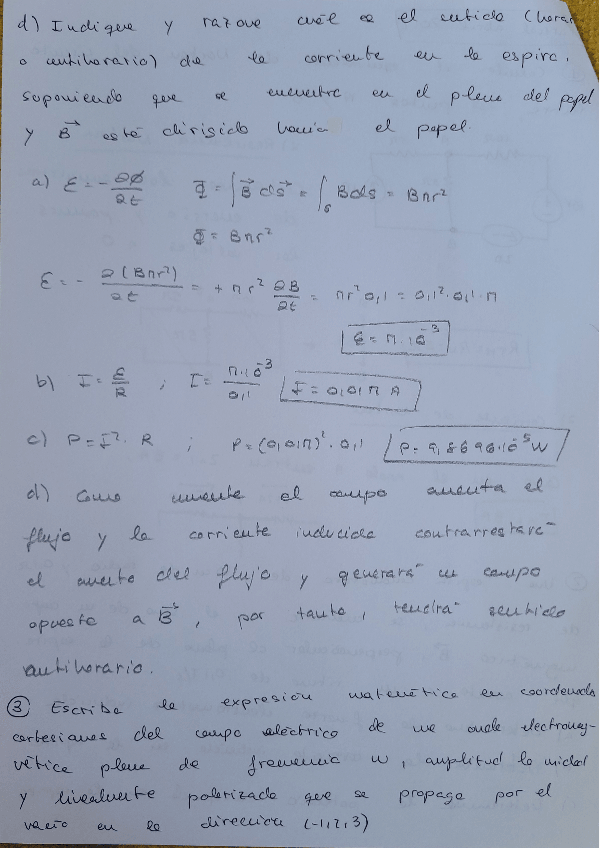 d) Indique y razone cuál es el sentido (horar
o antihorario) de la corriente en la espira.
suponiendo que se encuentra en el plano del papel
y B⃗ está dirigido hacia el papel.
a) ε = -∂Φ/∂t Φ = ∫B⃗ ds⃗ = ∫s B ds = Bπr²
Φ = Bπr²
ε = - ∂(Bπr²)/∂t = + πr² ∂B/∂t = πr² 0,1 = 0,1²·0,1·π
ε = π·10⁻³
b) I = ε/R ; I = π·10⁻³/0,1 I = 0,01π A
c) P = I²·R ; P = (0,01π)²·0,1 P = 9,8696·10⁻⁵ W
d) Como aumenta el campo aumenta el
flujo y la corriente inducida contrarrestará
el aumento del flujo y generará un campo
opuesto a B⃗, por tanto, tendrá sentido
antihorario.
③ Escribe la expresión matemática en coordenadas
cartesianas del campo eléctrico de una onda electromag-
nética plana de frecuencia w, amplitud la unidad
y linealmente polarizada que se propaga por el
vacío en la dirección (-1,2,3)